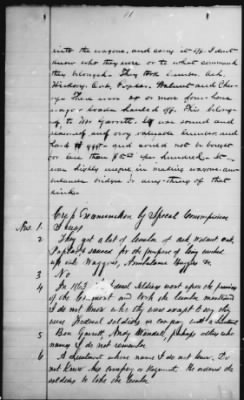 11
into the wagons, and carry it off. I dont
know who they were or to what command
they belonged. They took Lumber, Ash,
Hickory, Oak, Poplar, Walnut and Cher-
ry. There were six or more four-horse
wagon loads hauled off. This belong-
ed to Mr. Garrett. It was sound and
seasoned and very valuable lumber and
hard to get and would not be bought
for less than $ per hundred. It
was highly useful in making wagons, am-
bulances bridges or anything of that
kind.
Cross Examination by Special Commissioner
Ans. 1
2 They got a lot of lumber of ash walnut oak,
Poplar & sawed for the purpose of being worked
up into Waggons, Ambulances Buggies &c
3 No
4 In 1863 Federal Soldiers went upon the premises
of the Claimant and took the lumber mentioned
I do not know who they were except they
were Federal soldiers in company with a Lieutenant
5 Ben Garrett, Andy Wendell, perhaps others whose
names I do not remember
6 A Lieutenant whose name I do not know. Do
not know his company or Regiment. He ordered the
soldiers to take the lumber